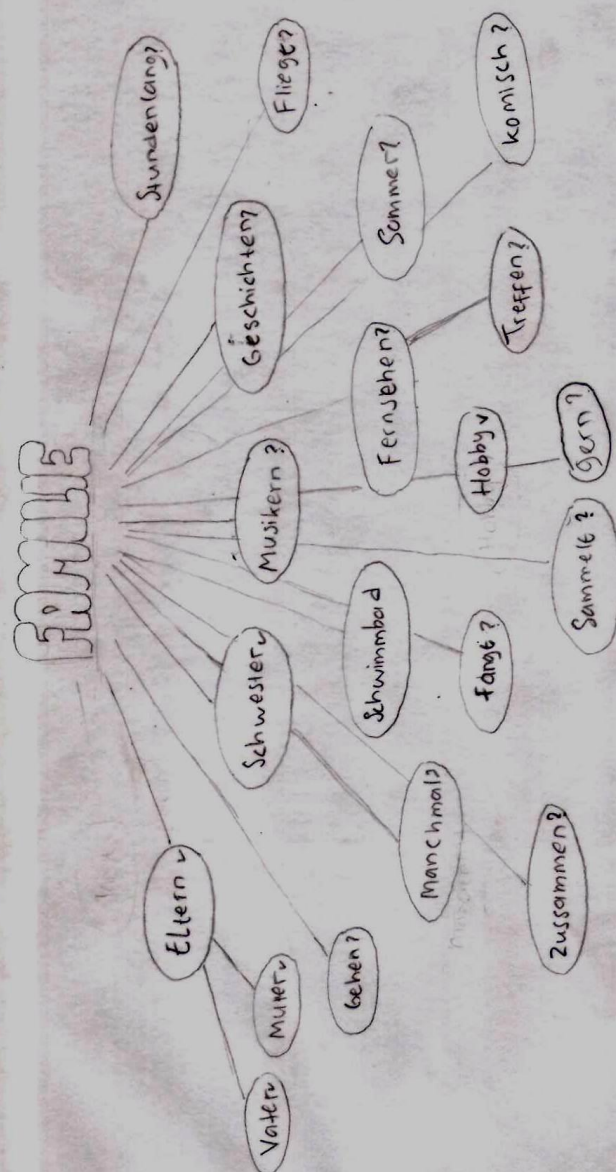 FAMILIE
Eltern ✓
Vater ✓
Mutter ✓
Gehen?
Schwester ✓
Manchmal?
Zussammen?
Schwimmbad
Fängt?
Musikern?
Sammelt?
Hobby ✓
Gern?
Fernsehen?
Treffen?
Geschichten?
Sommer?
Komisch?
Fliegt?
Stundenlang?